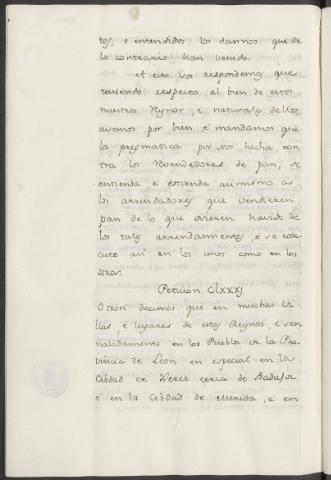 tos, e entendidos los dannos que de
lo contrario han venido.
A esto vos respondemos que
teniendo respecto al bien de estos
nuestros Reynos, e naturales dellos,
avemos por bien, e mandamos que
la pregmatica por nos hecha con
tra los Revendedores de pan, se
entienda e estienda asimismo a
los arrendadores que vendieren
pan de lo que ovieren havido de
los tales arrendamientos, e se exe-
cute asi en los unos como en los
otros.
Peticion, Clxxxj
Otrosi decimos que en muchas Vi
llas, e lugares de estos Reynos, e sen
naladamente en los Pueblos de la Pro
vincia de Leon en especial en la
Cibdad de Xerez cerca de Badajoz
e en la Cibdad de Merida, e en